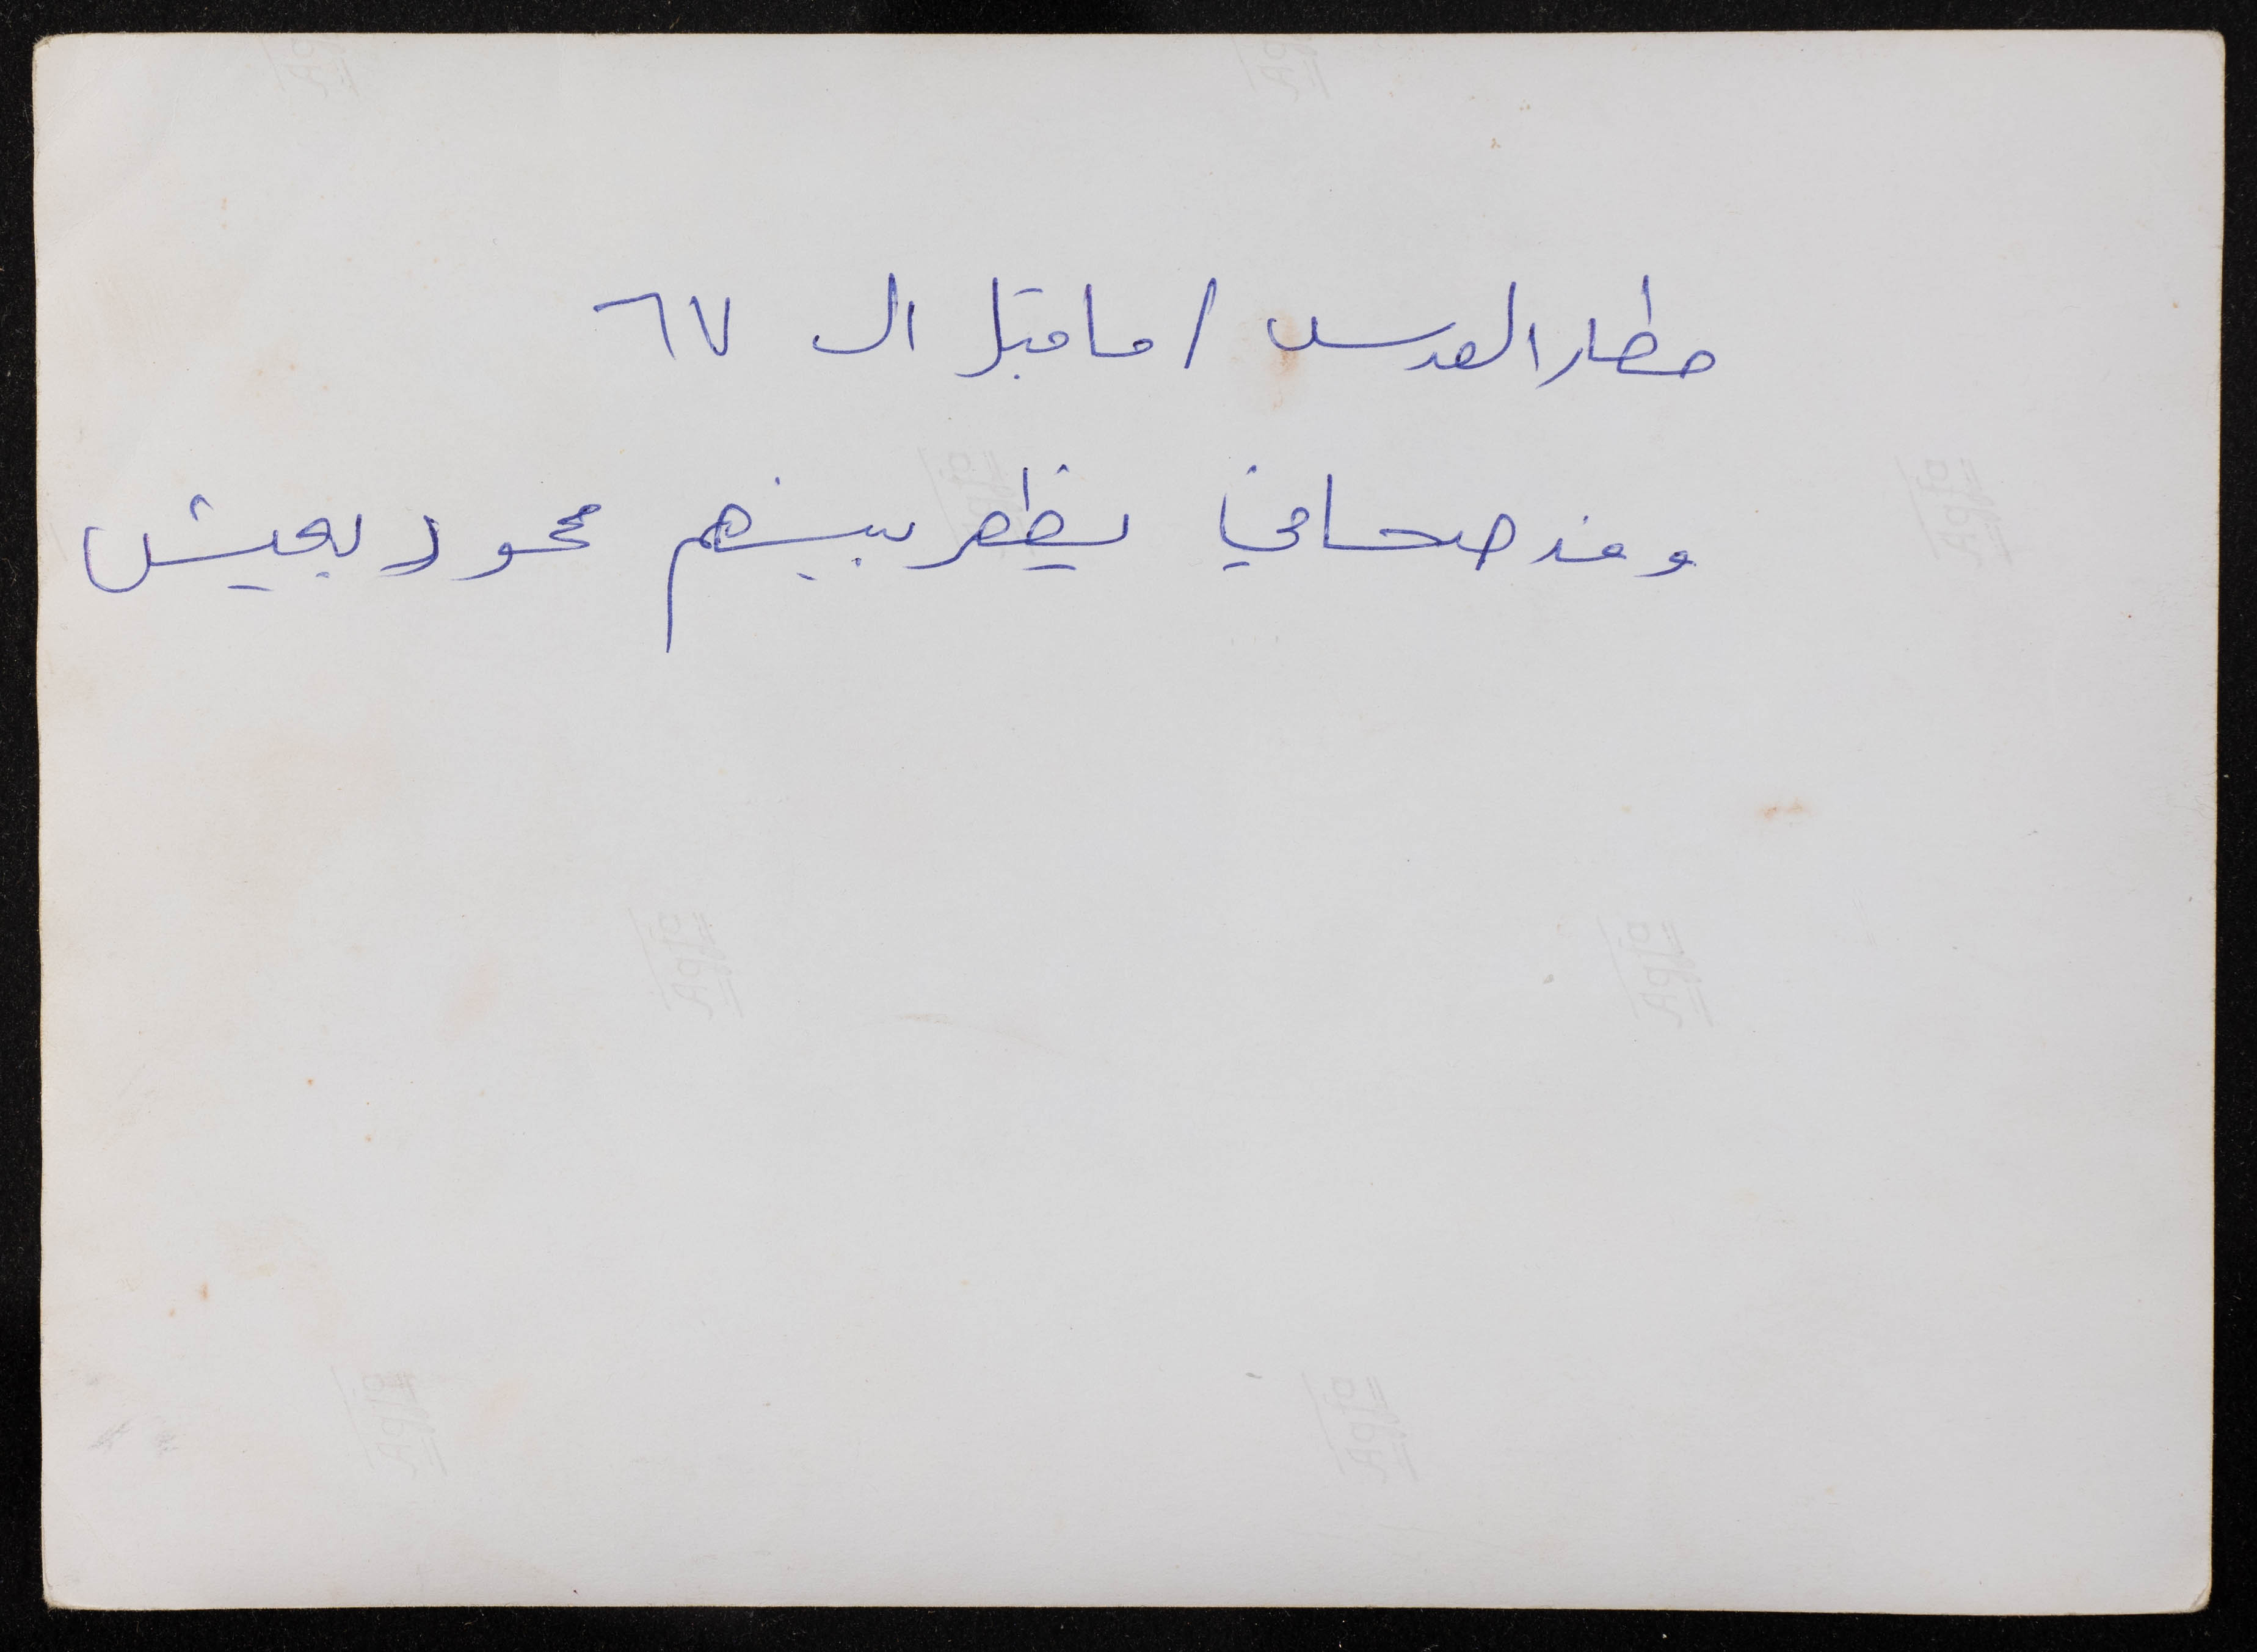 مطار القدس / ما قبل ال ٦٧
وفد صحافي يظهر بينهم محمود يعيش
Agfa
Agfa
Agfa
Agfa
Agfa
Agfa
Agfa
Agfa